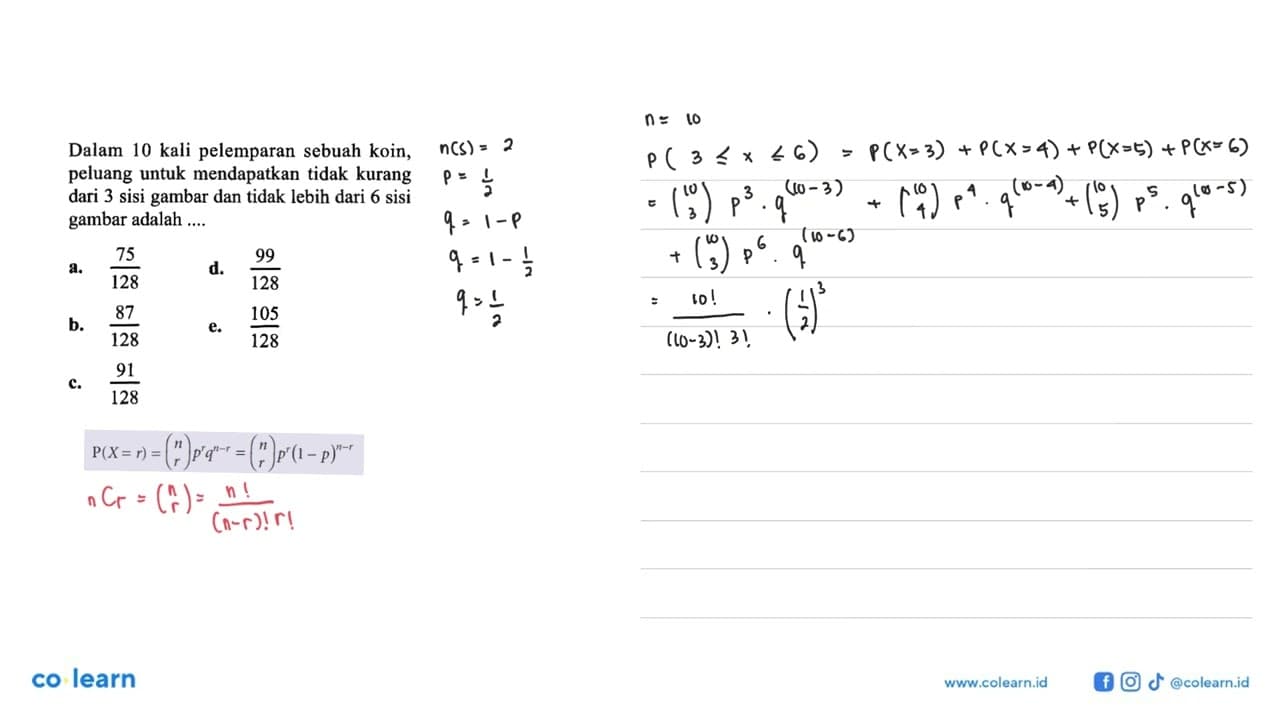 Dalam 10 kali pelemparan sebuah koin,
peluang untuk mendapatkan tidak kurang
dari 3 sisi gambar dan tidak lebih dari 6 sisi
gambar adalah ....
a. 75/128
b. 87/128
c. 91/128
d. 99/128
e. 105/128
P(X = r) = (n r) p^r q^{n-r} = (n r) p^r (1 – p)^{n-r}
nCr = (n r) = n! / (n-r)! r!
n(S) = 2
p = 1/2
q = 1 - p
q = 1 - 1/2
q = 1/2
n = 10
P( 3 ≤ x ≤ 6) = P(X=3) + P(X=4) + P(X=5) + P(X=6)
= (10 3) p^3 . q^(10-3) + (10 4) p^4 . q^(10-4) + (10 5) p^5 . q^(10-5)
+ (10 3) p^6 . q^(10-6)
= 10! / (10-3)! 3! . (1/2)^3
co learn
www.colearn.id
@colearn.id